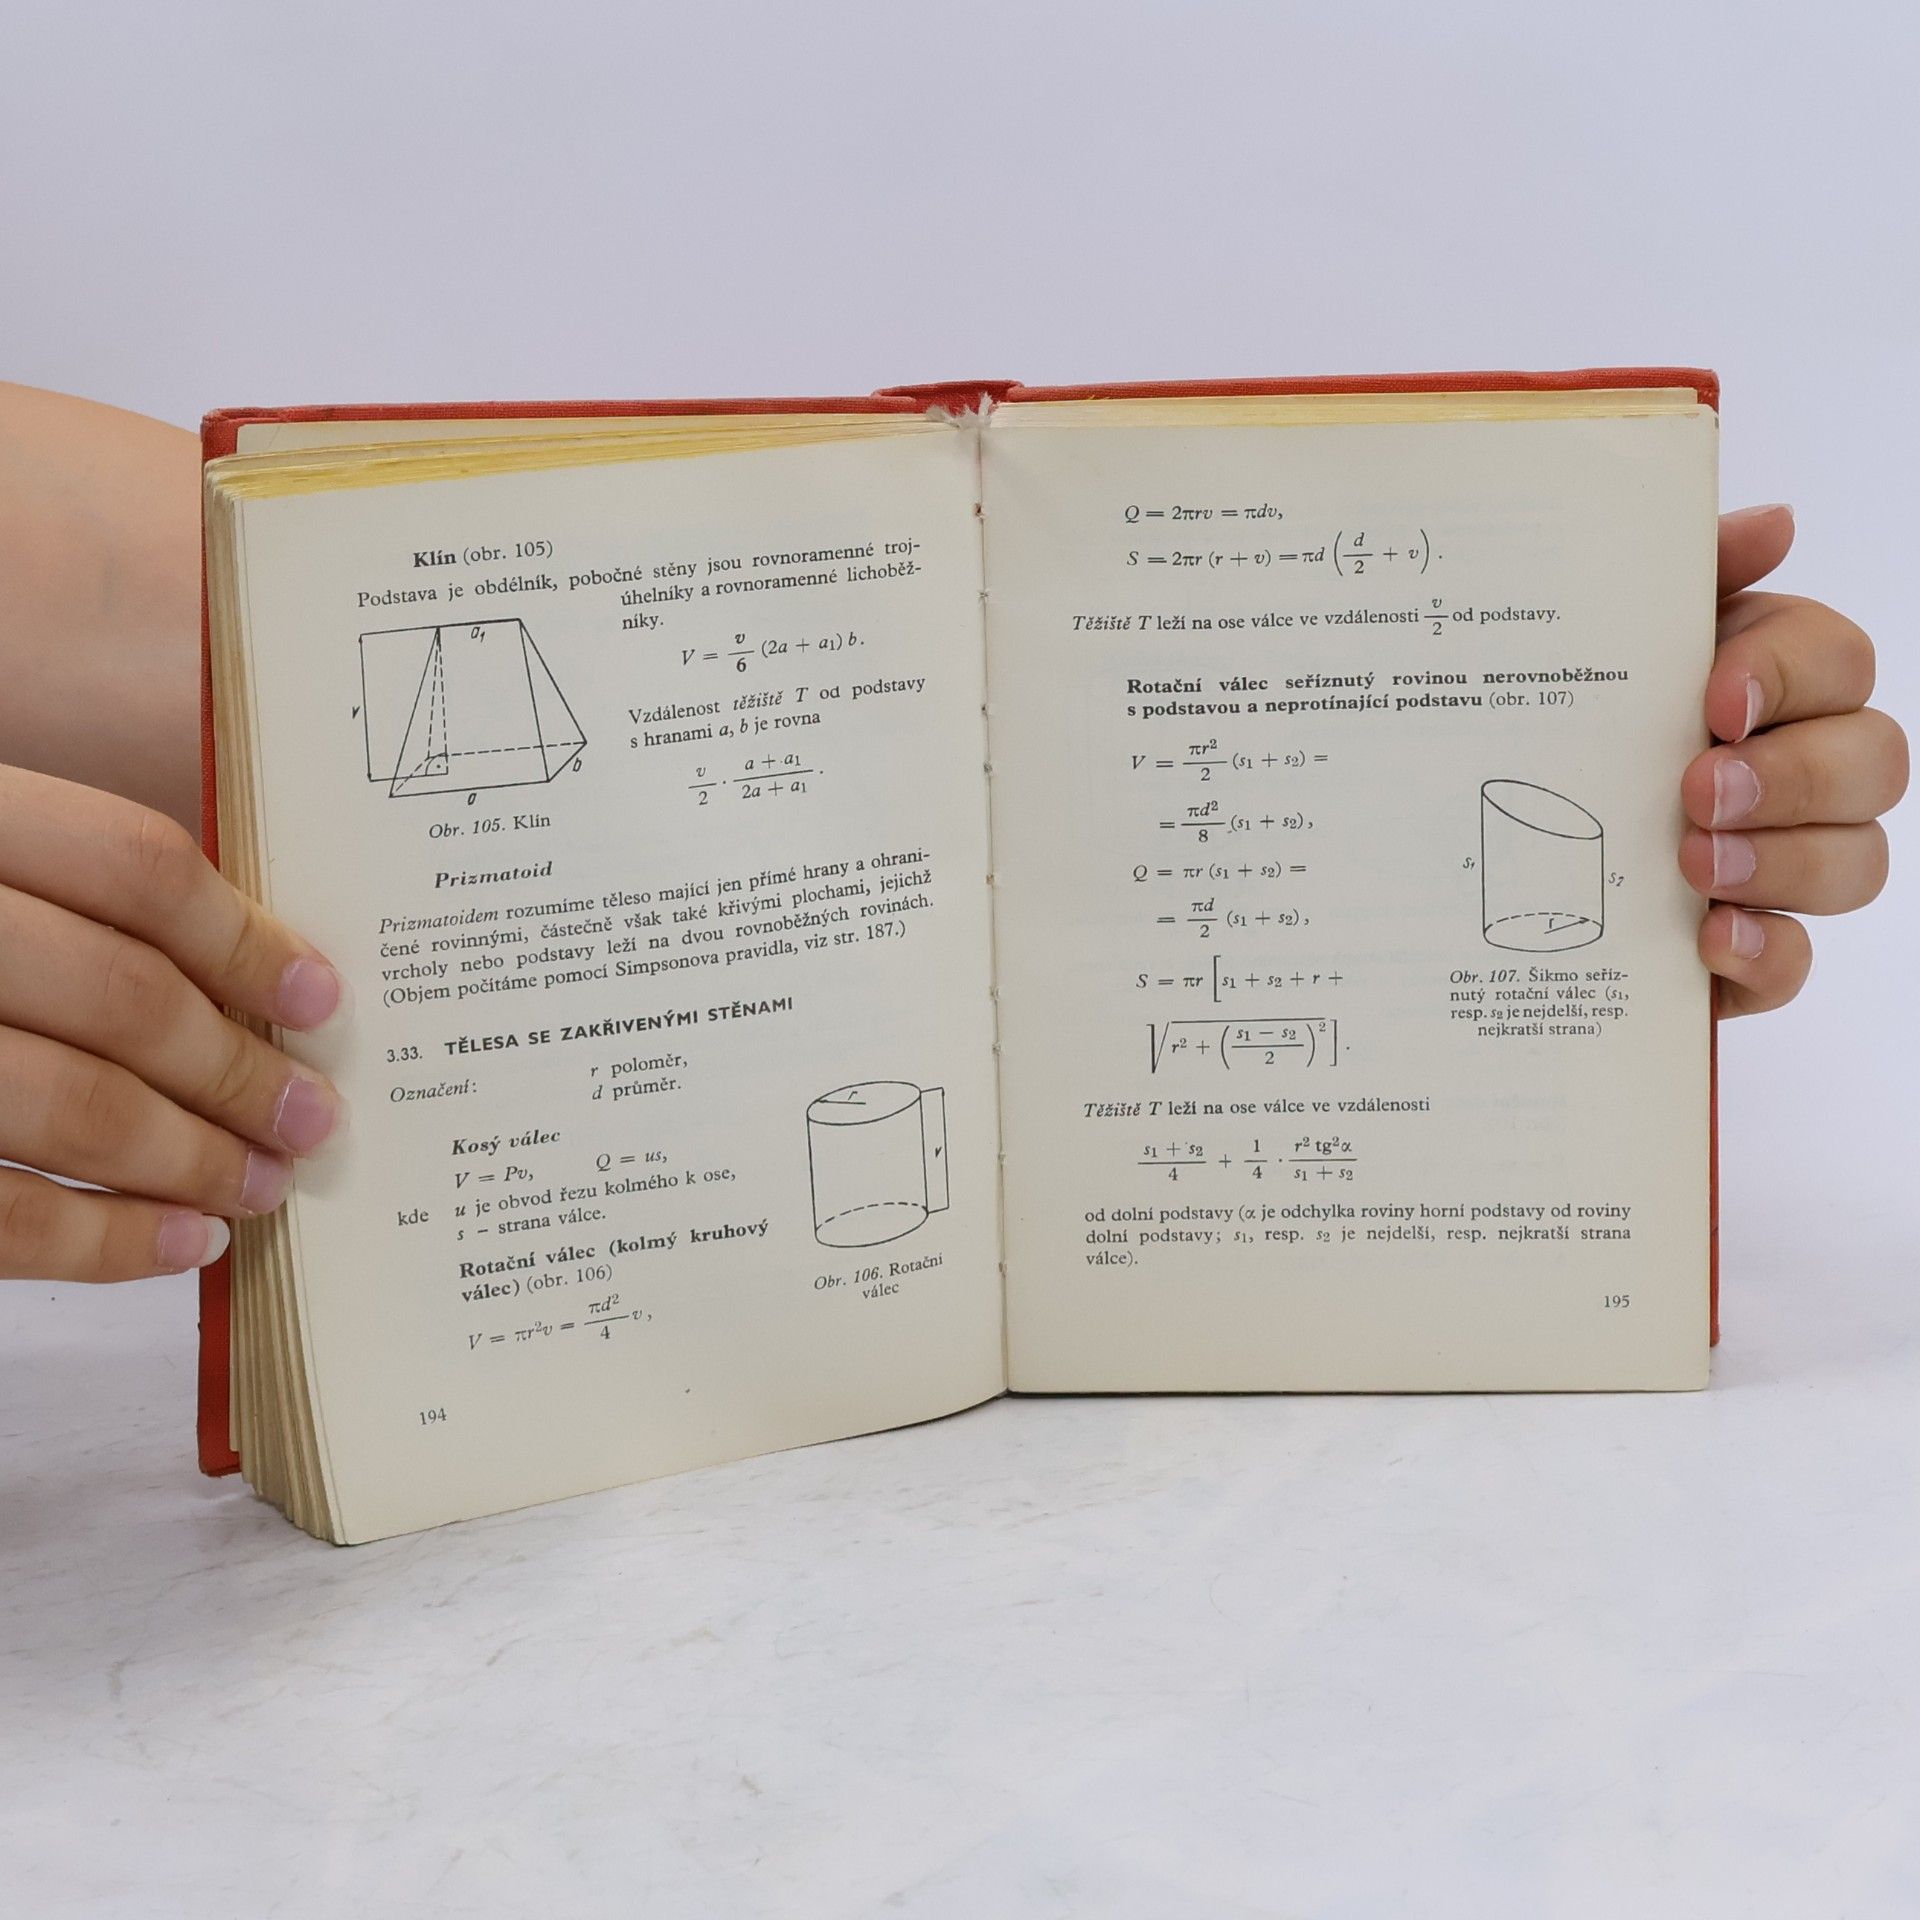 Klín (obr. 105)
Podstava je obdélník, pobočné stěny jsou rovnoramenné troj-
úhelníky a rovnoramenné lichoběž-
níky.
V = v/6 (2a + a₁) b.
Vzdálenost těžiště T od podstavy
s hranami a, b je rovna
v/2 · (a + a₁)/(2a + a₁).
a₁
v
b
a
Obr. 105. Klín
Prizmatoid
Prizmatoidem rozumíme těleso mající jen přímé hrany a ohrani-
čené rovinnými, částečně však také křivými plochami, jejichž
vrcholy nebo podstavy leží na dvou rovnoběžných rovinách.
(Objem počítáme pomocí Simpsonova pravidla, viz str. 187.)
3.33. TĚLESA SE ZAKŘIVENÝMI STĚNAMI
Označení: r poloměr,
d průměr.
Kosý válec
V = Pv, Q = us,
kde u je obvod řezu kolmého k ose,
s – strana válce.
Rotační válec (kolmý kruhový
válec) (obr. 106)
V = πr²v = πd²/4 v,
r
v
Obr. 106. Rotační
válec
194
Q = 2πrv = πdv,
S = 2πr (r + v) = πd (d/2 + v).
Těžiště T leží na ose válce ve vzdálenosti v/2 od podstavy.
Rotační válec seříznutý rovinou nerovnoběžnou
s podstavou a neprotínající podstavu (obr. 107)
V = πr²/2 (s₁ + s₂) =
= πd²/8 (s₁ + s₂),
Q = πr (s₁ + s₂) =
= πd/2 (s₁ + s₂),
S = πr [s₁ + s₂ + r +
√(r² + ((s₁ − s₂)/2)²)].
s₁
s₂
r
Obr. 107. Šikmo seříz-
nutý rotační válec (s₁,
resp. s₂ je nejdelší, resp.
nejkratší strana)
Těžiště T leží na ose válce ve vzdálenosti
(s₁ + s₂)/4 + 1/4 · (r² tg²α)/(s₁ + s₂)
od dolní podstavy (α je odchylka roviny horní podstavy od roviny
dolní podstavy; s₁, resp. s₂ je nejdelší, resp. nejkratší strana
válce).
195